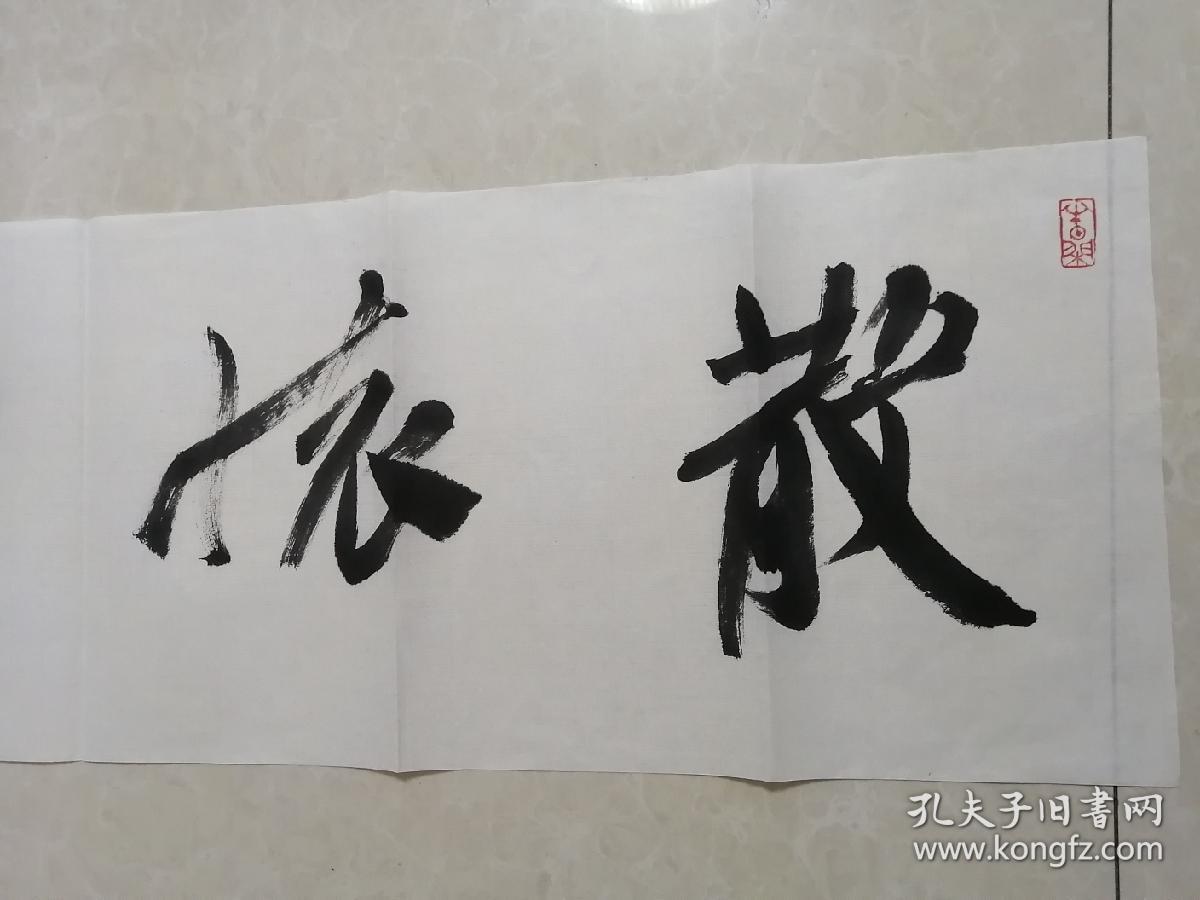 散懷
孔夫子旧書网
www.kongfz.com